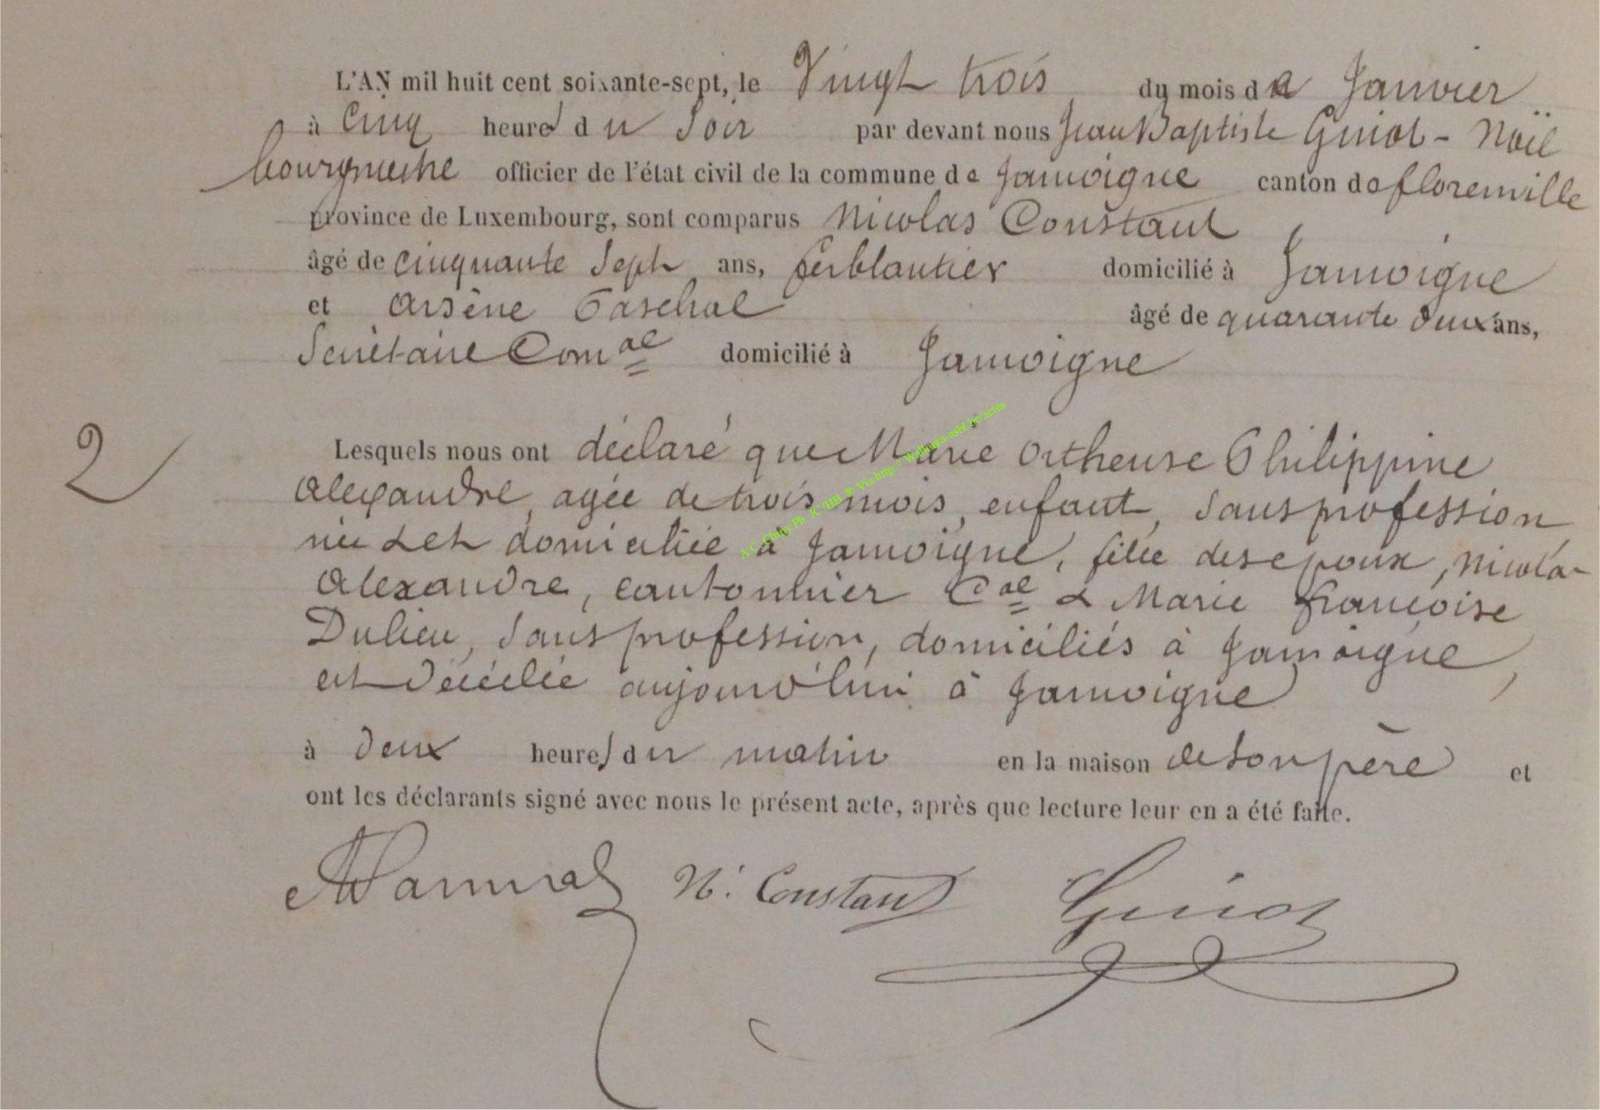 L'AN mil huit cent soixante-sept, le Vingt trois du mois de Janvier
à Cinq heures du Soir par devant nous Jean Baptiste Guiot - Noël
bourgmestre officier de l'état civil de la commune de Jamoigne canton de florenville
province de Luxembourg, sont comparus Nicolas Constant
âgé de cinquante Sept ans, ferblantier domicilié à Jamoigne
et Arsène Paschal âgé de quarante deux ans,
Secrétaire Comal domicilié à Jamoigne
2
Lesquels nous ont déclaré que Marie Ortheuse Philippine
Alexandre, agée de trois mois, enfant, sans profession
née & et domiciliée à Jamoigne, fille des epoux, Nicola-
Alexandre, cantonnier Cal & Marie françoise
Dulieu, sans profession, domiciliés à Jamoigne,
est décédée aujourd'hui à Jamoigne
à deux heures du matin en la maison de son père et
ont les déclarants signé avec nous le présent acte, après que lecture leur en a été faite.
N. Constant Guiot